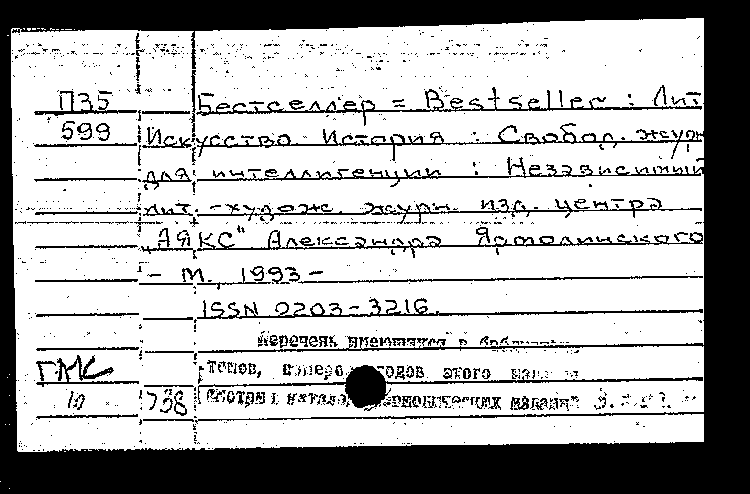 П35 Бестселлер = Bestseller : Лит
599 Искусство. История : Свобод. журн
для интеллигенции : Независимый
лит.-худож. журн. изд. центра
"АЯКС" Александра Ярмолинского
– М., 1993 –
ISSN 0203-3216.
Перечень имеющихся в
ГМС томов, годов этого
10 738 смотри периодических изданий